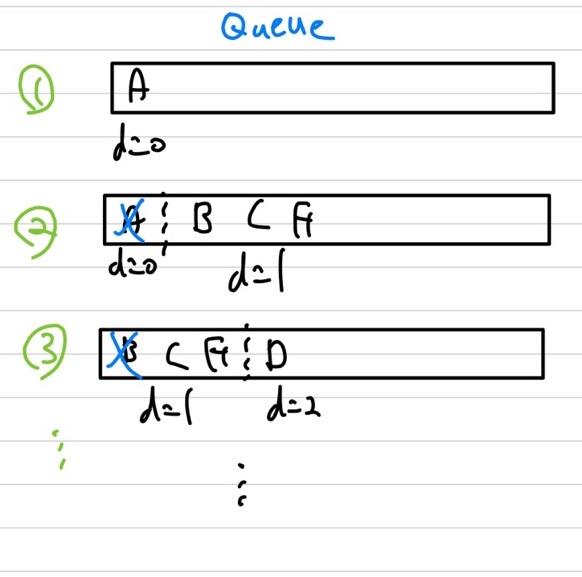 Queue
① A
d=0
② A B C F
d=0 d=1
③ B C F D
d=1 d=2